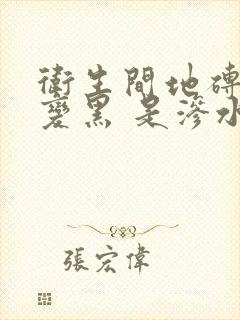 衛生間地磚
變黑 是滲水
張宏偉